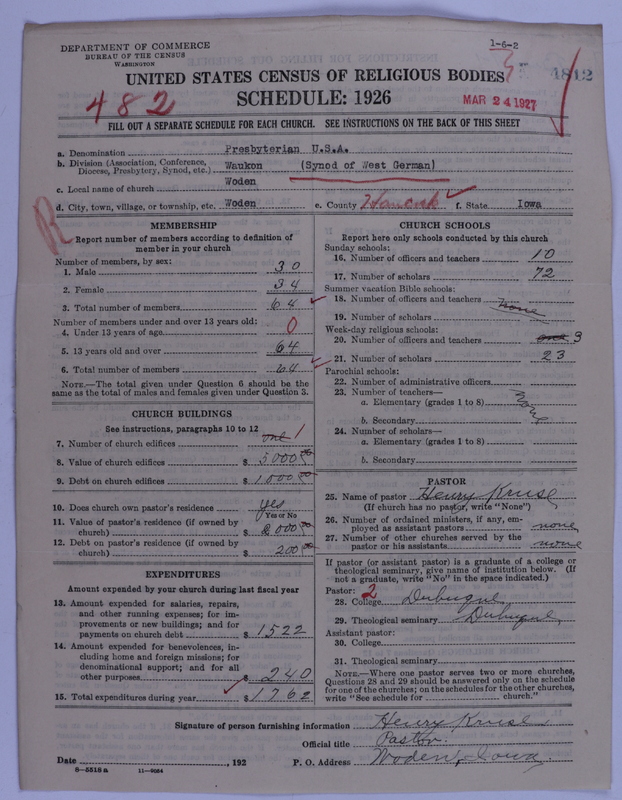 DEPARTMENT OF COMMERCE
BUREAU OF THE CENSUS
WASHINGTON
1-6-2
4812
UNITED STATES CENSUS OF RELIGIOUS BODIES
SCHEDULE: 1926
482
MAR 24 1927
FILL OUT A SEPARATE SCHEDULE FOR EACH CHURCH. SEE INSTRUCTIONS ON THE BACK OF THIS SHEET
a. Denomination Presbyterian U.S.A.
b. Division (Association, Conference, Diocese, Presbytery, Synod, etc.) Waukon (Synod of West German)
c. Local name of church Woden
d. City, town, village, or township, etc. Woden e. County Hancock f. State Iowa
R
MEMBERSHIP
Report number of members according to definition of
member in your church
Number of members, by sex:
1. Male 30
2. Female 34
3. Total number of members 64
Number of members under and over 13 years old:
4. Under 13 years of age 0
5. 13 years old and over 64
6. Total number of members 64
NOTE.—The total given under Question 6 should be the
same as the total of males and females given under Question 3.
CHURCH BUILDINGS
See instructions, paragraphs 10 to 12
7. Number of church edifices one 1
8. Value of church edifices $ 5000.00
9. Debt on church edifices $ 1000.00
10. Does church own pastor's residence yes
Yes or No
11. Value of pastor's residence (if owned by
church) $ 2000.00
12. Debt on pastor's residence (if owned by
church) $ 200.00
EXPENDITURES
Amount expended by your church during last fiscal year
13. Amount expended for salaries, repairs,
and other running expenses; for im-
provements or new buildings; and for
payments on church debt $ 1522
14. Amount expended for benevolences, in-
cluding home and foreign missions; for
denominational support; and for all
other purposes $ 240
15. Total expenditures during year $ 1762
CHURCH SCHOOLS
Report here only schools conducted by this church
Sunday schools:
16. Number of officers and teachers 10
17. Number of scholars 72
Summer vacation Bible schools:
18. Number of officers and teachers none
19. Number of scholars
Week-day religious schools:
20. Number of officers and teachers 3
21. Number of scholars 23
Parochial schools:
22. Number of administrative officers
23. Number of teachers—
a. Elementary (grades 1 to 8)
b. Secondary
24. Number of scholars—
a. Elementary (grades 1 to 8)
b. Secondary
PASTOR
25. Name of pastor Henry Kruse
(If church has no pastor, write "None")
26. Number of ordained ministers, if any, em-
ployed as assistant pastors none
27. Number of other churches served by the
pastor or his assistants none
If pastor (or assistant pastor) is a graduate of a college or
theological seminary, give name of institution below. (If
not a graduate, write "No" in the space indicated.)
Pastor: 2
28. College Dubuque
29. Theological seminary Dubuque
Assistant pastor:
30. College
31. Theological seminary
NOTE.—Where one pastor serves two or more churches,
Questions 28 and 29 should be answered only on the schedule
for one of the churches; on the schedules for the other churches,
write "See schedule for church."
Signature of person furnishing information Henry Kruse
Official title Pastor.
Date , 192 P. O. Address Woden, Iowa
8-5518 a 11-9084